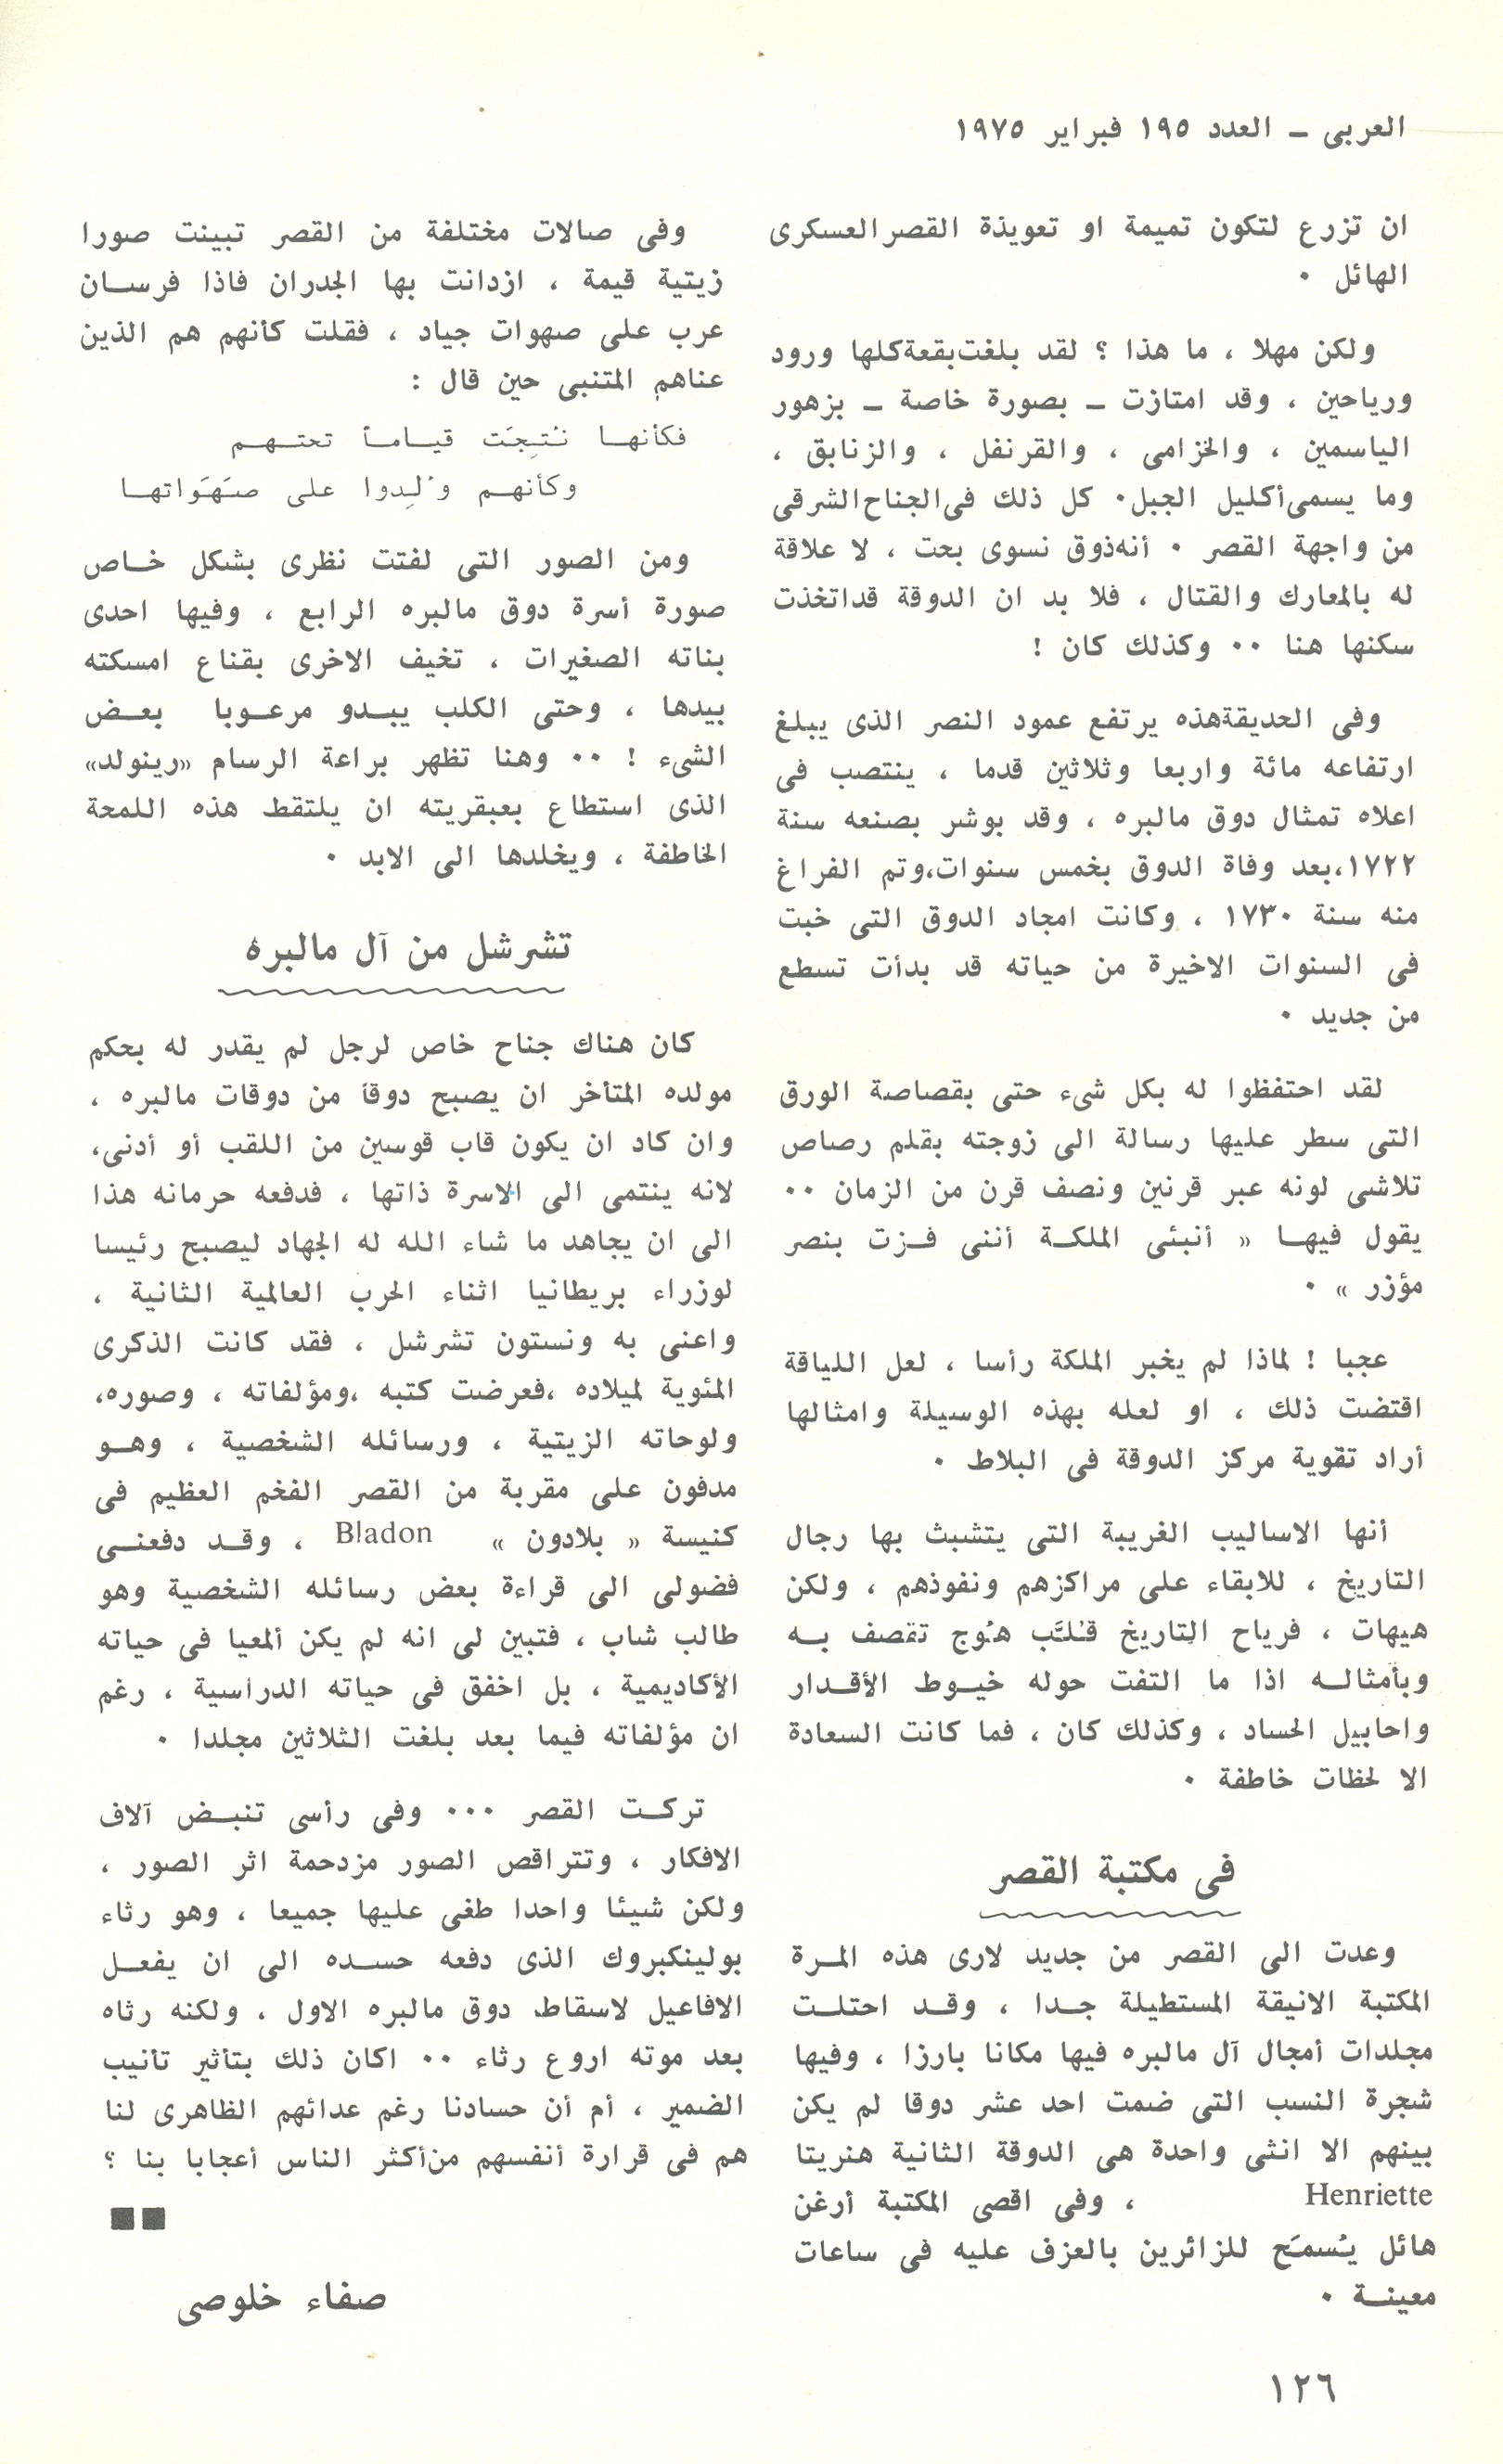 العربى ــ العدد ١٩٥ فبراير ١٩٧٥
ان تزرع لتكون تميمة او تعويذة القصر العسكرى
الهائل ٠
ولكن مهلا ، ما هذا ؟ لقد بلغت بقعة كلها ورود
ورياحين ، وقد امتازت ــ بصورة خاصة ــ بزهور
الياسمين ، والخزامى ، والقرنفل ، والزنابق ،
وما يسمى أكليل الجبل٠ كل ذلك فى الجناح الشرقى
من واجهة القصر ٠ أنه ذوق نسوى بحت ، لا علاقة
له بالمعارك والقتال ، فلا بد ان الدوقة قد اتخذت
سكنها هنا ٠٠ وكذلك كان !
وفى الحديقة هذه يرتفع عمود النصر الذى يبلغ
ارتفاعه مائة واربعا وثلاثين قدما ، ينتصب فى
اعلاه تمثال دوق مالبره ، وقد بوشر بصنعه سنة
١٧٢٢،بعد وفاة الدوق بخمس سنوات،وتم الفراغ
منه سنة ١٧٣٠ ، وكانت امجاد الدوق التى خبت
فى السنوات الاخيرة من حياته قد بدأت تسطع
من جديد ٠
لقد احتفظوا له بكل شىء حتى بقصاصة الورق
التى سطر عليها رسالة الى زوجته بقلم رصاص
تلاشى لونه عبر قرنين ونصف قرن من الزمان ٠٠
يقول فيهـا « أنبئى الملكـة أننى فـزت بنصر
مؤزر » ٠
عجبا ! لماذا لم يخبر الملكة رأسا ، لعل اللياقة
اقتضت ذلك ، او لعله بهذه الوسيلة وامثالها
أراد تقوية مركز الدوقة فى البلاط ٠
أنها الاساليب الغريبة التى يتشبث بها رجال
التأريخ ، للابقاء على مراكزهم ونفوذهم ، ولكن
هيهات ، فرياح التاريخ قُلَّب هُوج تقصف بـه
وبأمثالـه اذا ما التفت حوله خيـوط الأقـدار
واحابيل الحساد ، وكذلك كان ، فما كانت السعادة
الا لحظات خاطفة ٠
فى مكتبة القصر
وعدت الى القصر من جديد لارى هذه المـرة
المكتبة الانيقة المستطيلة جـدا ، وقـد احتلـت
مجلدات أمجال آل مالبره فيها مكانا بارزا ، وفيها
شجرة النسب التى ضمت احد عشر دوقا لم يكن
بينهم الا انثى واحدة هى الدوقة الثانية هنريتا
Henriette ، وفى اقصى المكتبة أرغن
هائل يُسمَح للزائرين بالعزف عليه فى ساعات
معينـة ٠
وفى صالات مختلفة من القصر تبينت صورا
زيتية قيمة ، ازدانت بها الجدران فاذا فرسـان
عرب على صهوات جياد ، فقلت كأنهم هم الذين
عناهم المتنبى حين قال :
فكأنهـا نُتِجَت قيـامـاً تحتـهـم
وكأنهـم وُلِدوا على صَهَوَاتهـا
ومن الصور التى لفتت نظرى بشكل خـاص
صورة أسرة دوق مالبره الرابع ، وفيها احدى
بناته الصغيرات ، تخيف الاخرى بقناع امسكته
بيدها ، وحتى الكلب يبـدو مرعـوبا بعـض
الشىء ! ٠٠ وهنا تظهر براعة الرسام «رينولد»
الذى استطاع بعبقريته ان يلتقط هذه اللمحة
الخاطفة ، ويخلدها الى الابد ٠
تشرشل من آل مالبره
كان هناك جناح خاص لرجل لم يقدر له بحكم
مولده المتأخر ان يصبح دوقا من دوقات مالبره ،
وان كاد ان يكون قاب قوسين من اللقب أو أدنى،
لانه ينتمى الى الاسرة ذاتها ، فدفعه حرمانه هذا
الى ان يجاهد ما شاء الله له الجهاد ليصبح رئيسا
لوزراء بريطانيا اثناء الحرب العالمية الثانية ،
واعنى به ونستون تشرشل ، فقد كانت الذكرى
المئوية لميلاده ،فعرضت كتبه ،ومؤلفاته ، وصوره،
ولوحاته الزيتية ، ورسائله الشخصية ، وهـو
مدفون على مقربة من القصر الفخم العظيم فى
كنيسة « بلادون » Bladon ، وقـد دفعنـى
فضولى الى قراءة بعض رسائله الشخصية وهو
طالب شاب ، فتبين لى انه لم يكن ألمعيا فى حياته
الأكاديمية ، بل اخفق فى حياته الدراسية ، رغم
ان مؤلفاته فيما بعد بلغت الثلاثين مجلدا ٠
تركـت القصر ٠٠٠ وفى رأسى تنبـض آلاف
الافكار ، وتتراقص الصور مزدحمة اثر الصور ،
ولكن شيئا واحدا طغى عليها جميعا ، وهو رثاء
بولينكبروك الذى دفعه حسـده الى ان يفعـل
الافاعيل لاسقاط دوق مالبره الاول ، ولكنه رثاه
بعد موته اروع رثاء ٠٠ اكان ذلك بتأثير تأنيب
الضمير ، أم أن حسادنا رغم عدائهم الظاهرى لنا
هم فى قرارة أنفسهم من أكثر الناس أعجابا بنا ؟
صفاء خلوصى
١٢٦